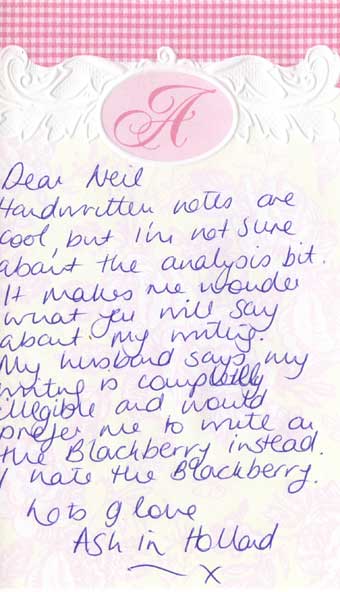 A
Dear Neil
Handwritten notes are
cool, but I'm not sure
about the analysis bit.
It makes me wonder
what you will say
about my writing.
My husband says my
writing is completely
illegible and would
prefer me to write on
the Blackberry instead.
I hate the Blackberry.
Lots g love
Ash in Holland
x